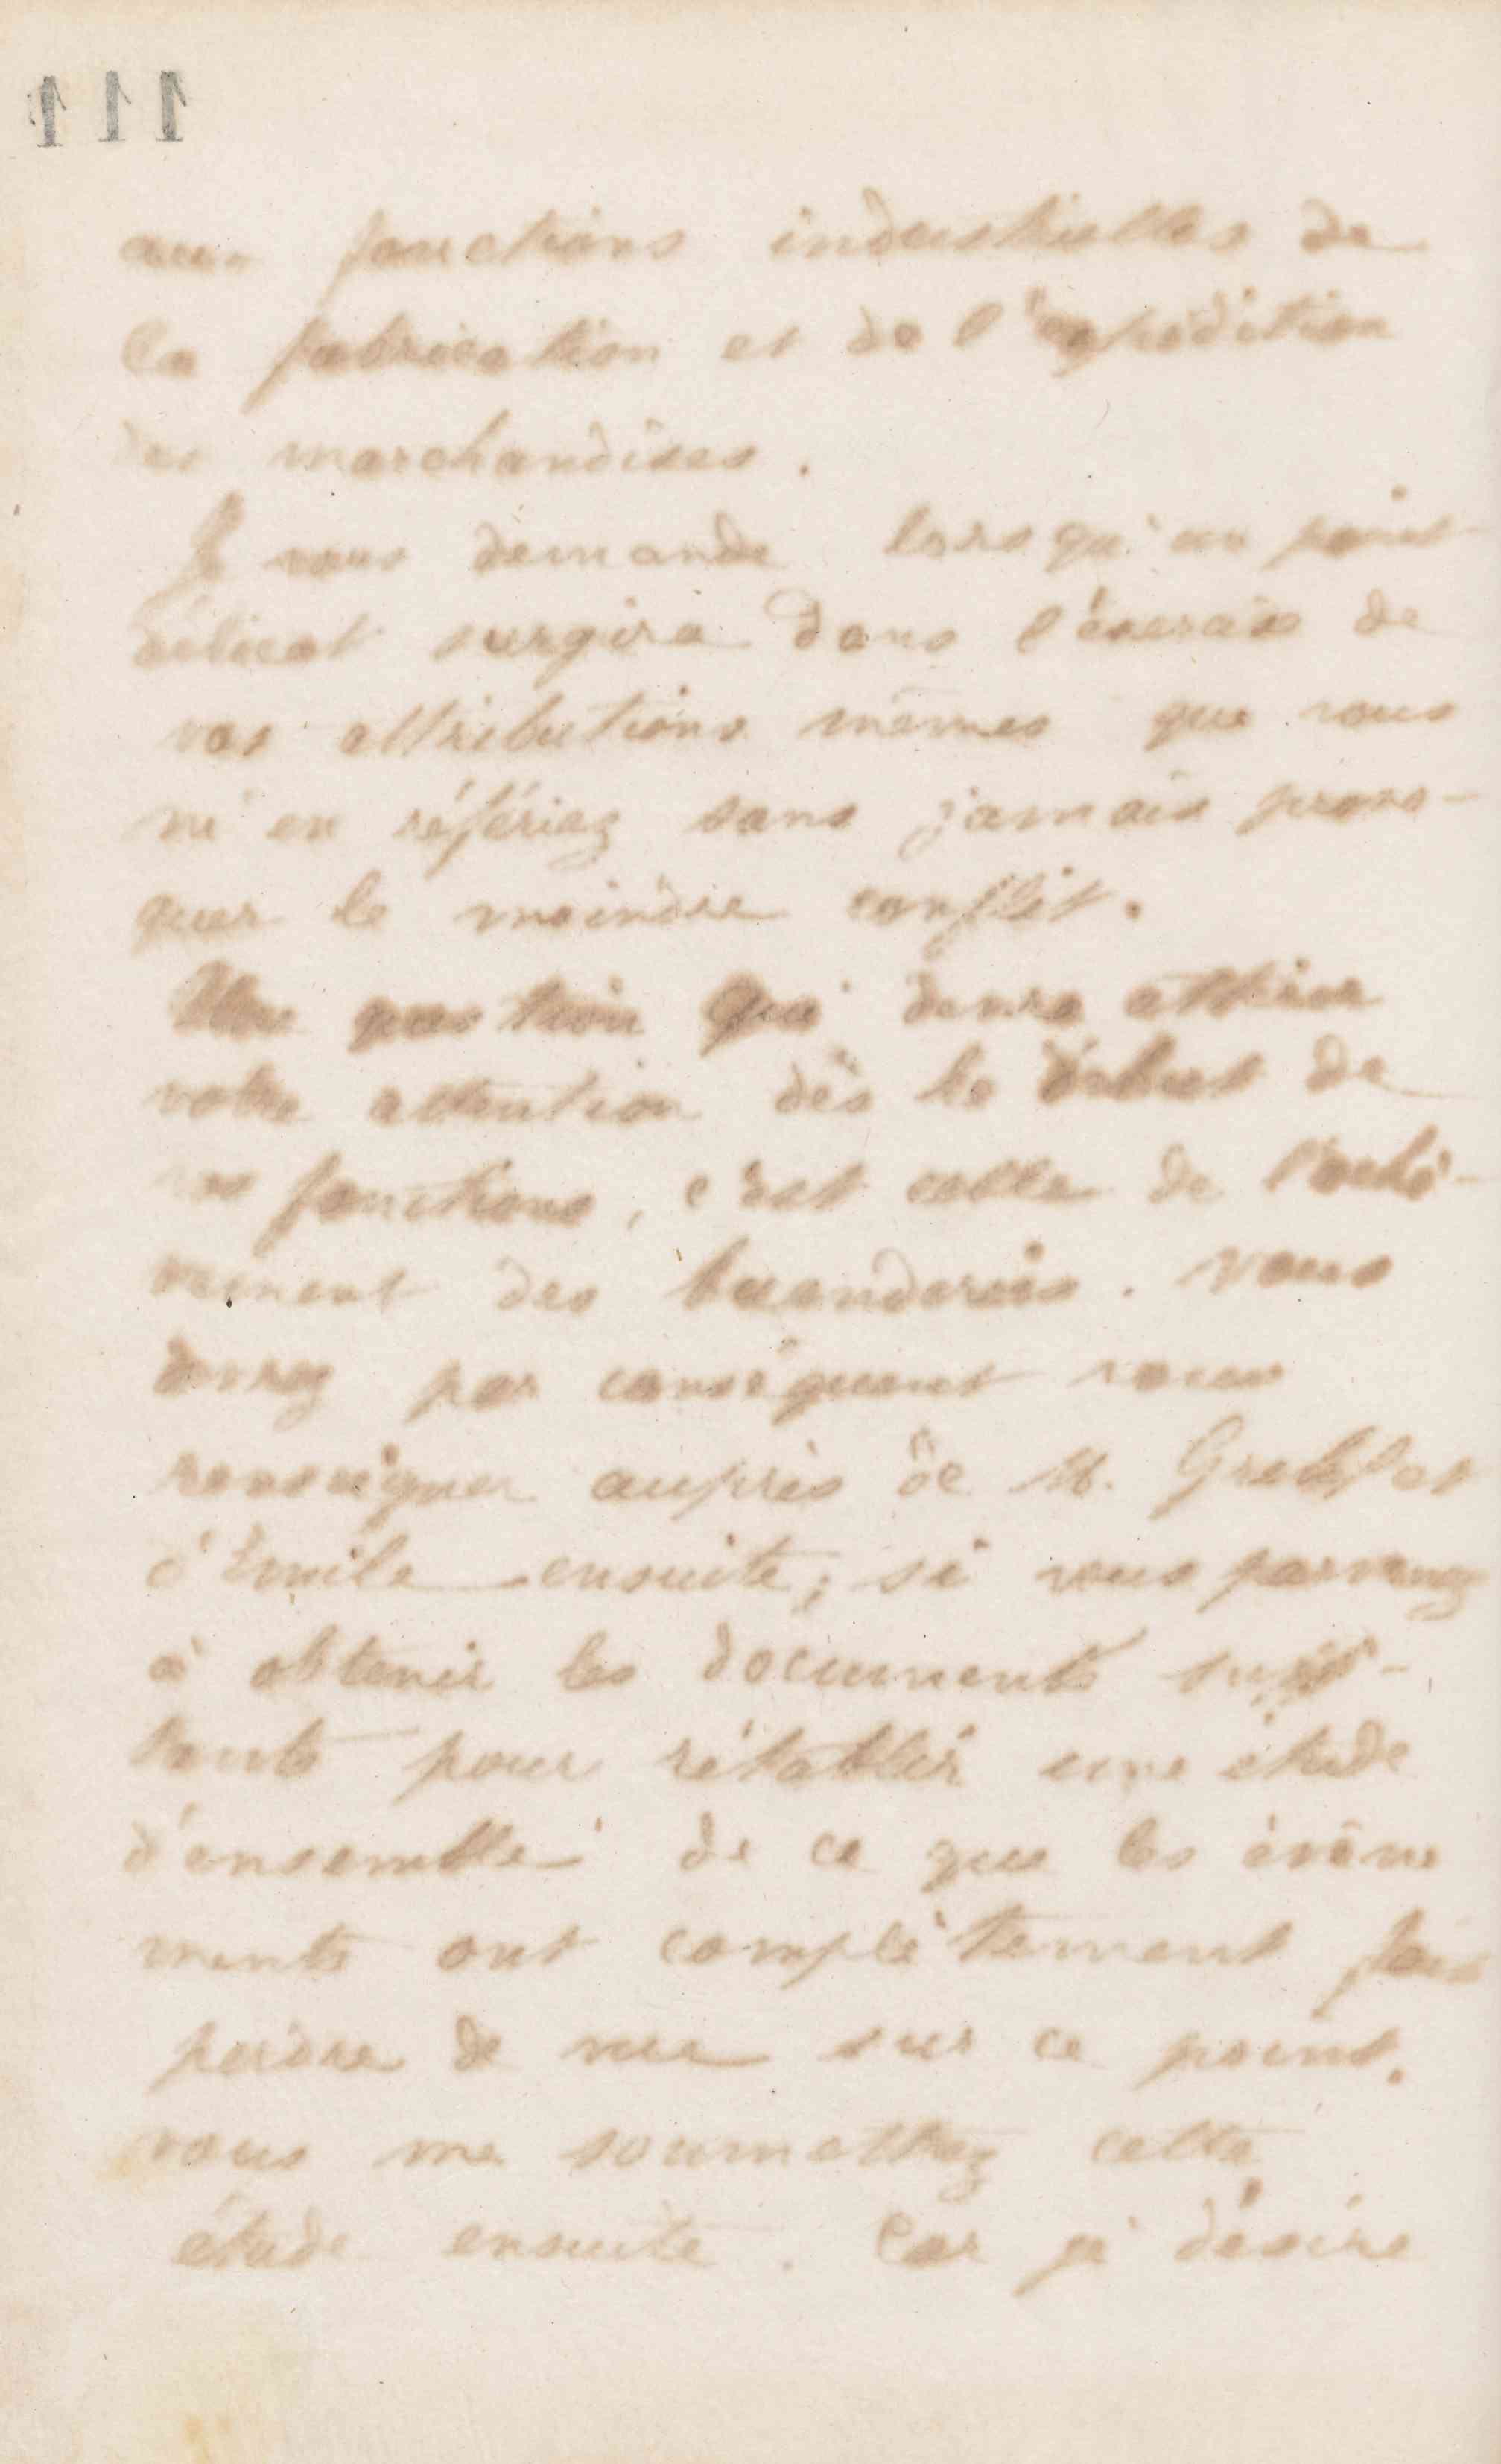 111
aux fonctions industrielles de
la fabrication et de l'expédition
des marchandises.
Je vous demande lorsqu'un point
délicat surgira dans l'exercice de
vos attributions mêmes que vous
m'en référiez sans jamais provo-
quer le moindre conflit.
Une question qui devra attirer
votre attention dès le début de
vos fonctions, c'est celle de l'achè-
vement des buanderies. Vous
devrez par conséquent vous
renseigner auprès de M. et
d'Emile ensuite; si vous parvenez
à obtenir les documents suffi-
sants pour rétablir une étude
d'ensemble de ce que les évène
ments ont complètement fait
perdre de vue sur ce point.
vous me soumettrez cette
étude ensuite. Car je désire